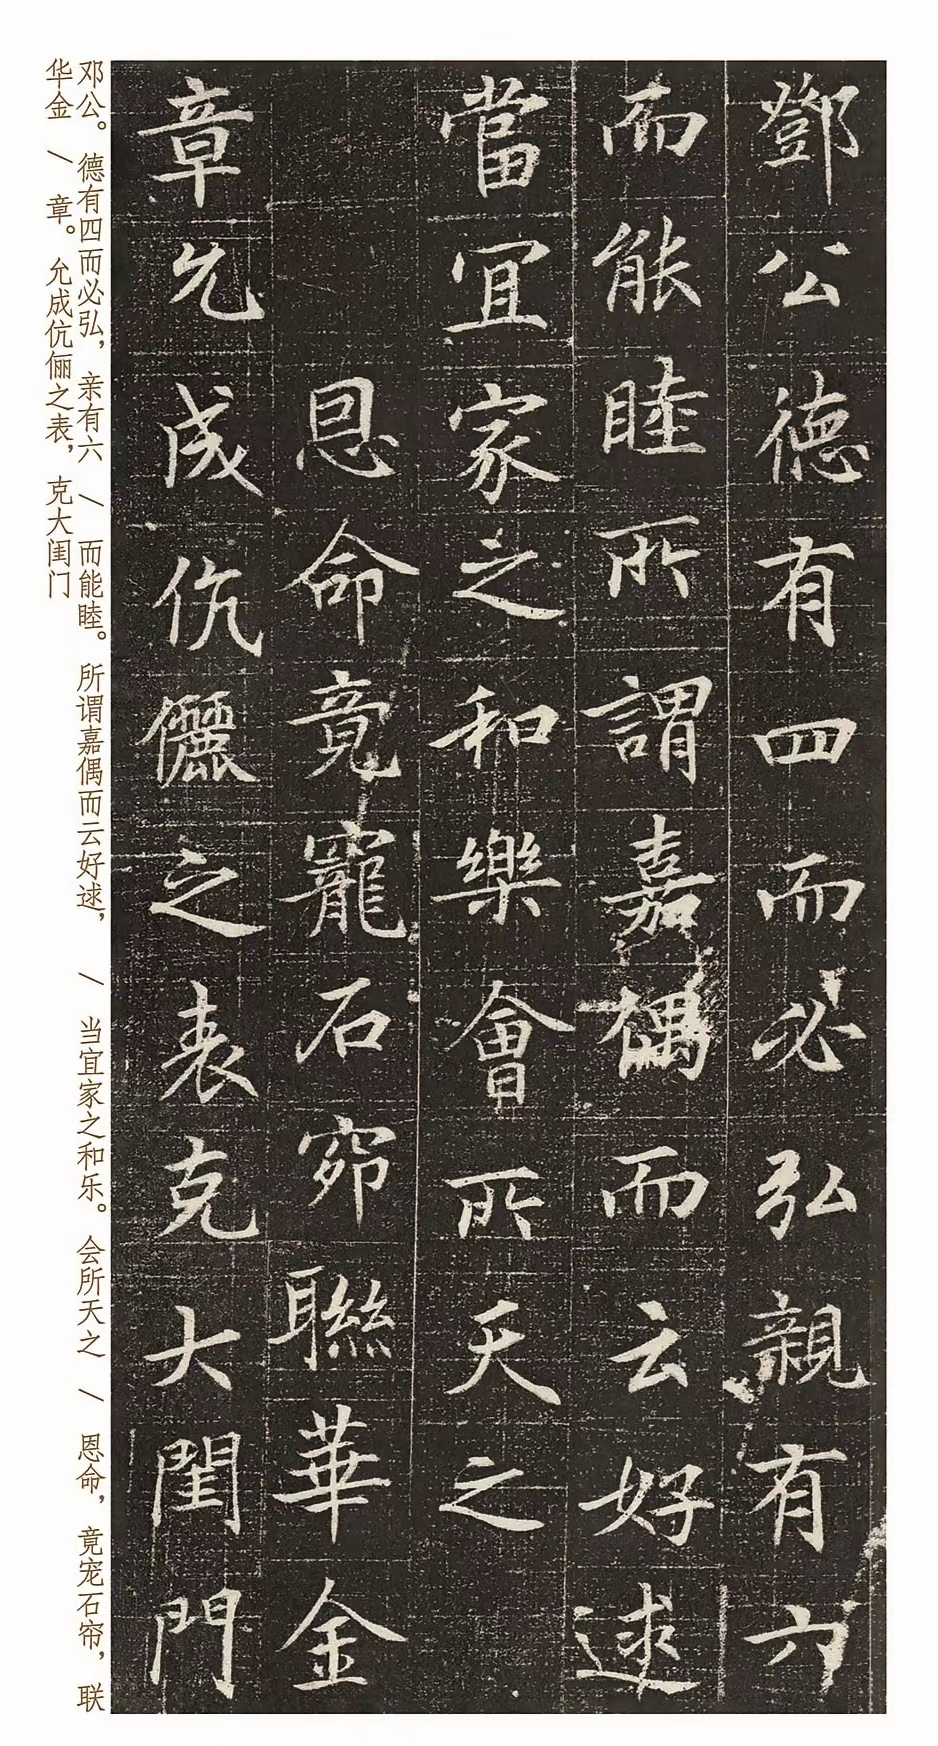 鄧公德有四而必弘親有六
而能睦所謂嘉偶而云好逑
當宜家之和樂會所天之
恩命竟寵石窌聯華金
章允成伉儷之表克大閨門
邓公。德有四而必弘，亲有六 / 而能睦。所谓嘉偶而云好逑， / 当宜家之和乐。会所天之 / 恩命，竟宠石帘，联
华金 / 章。允成伉俪之表，克大闺门